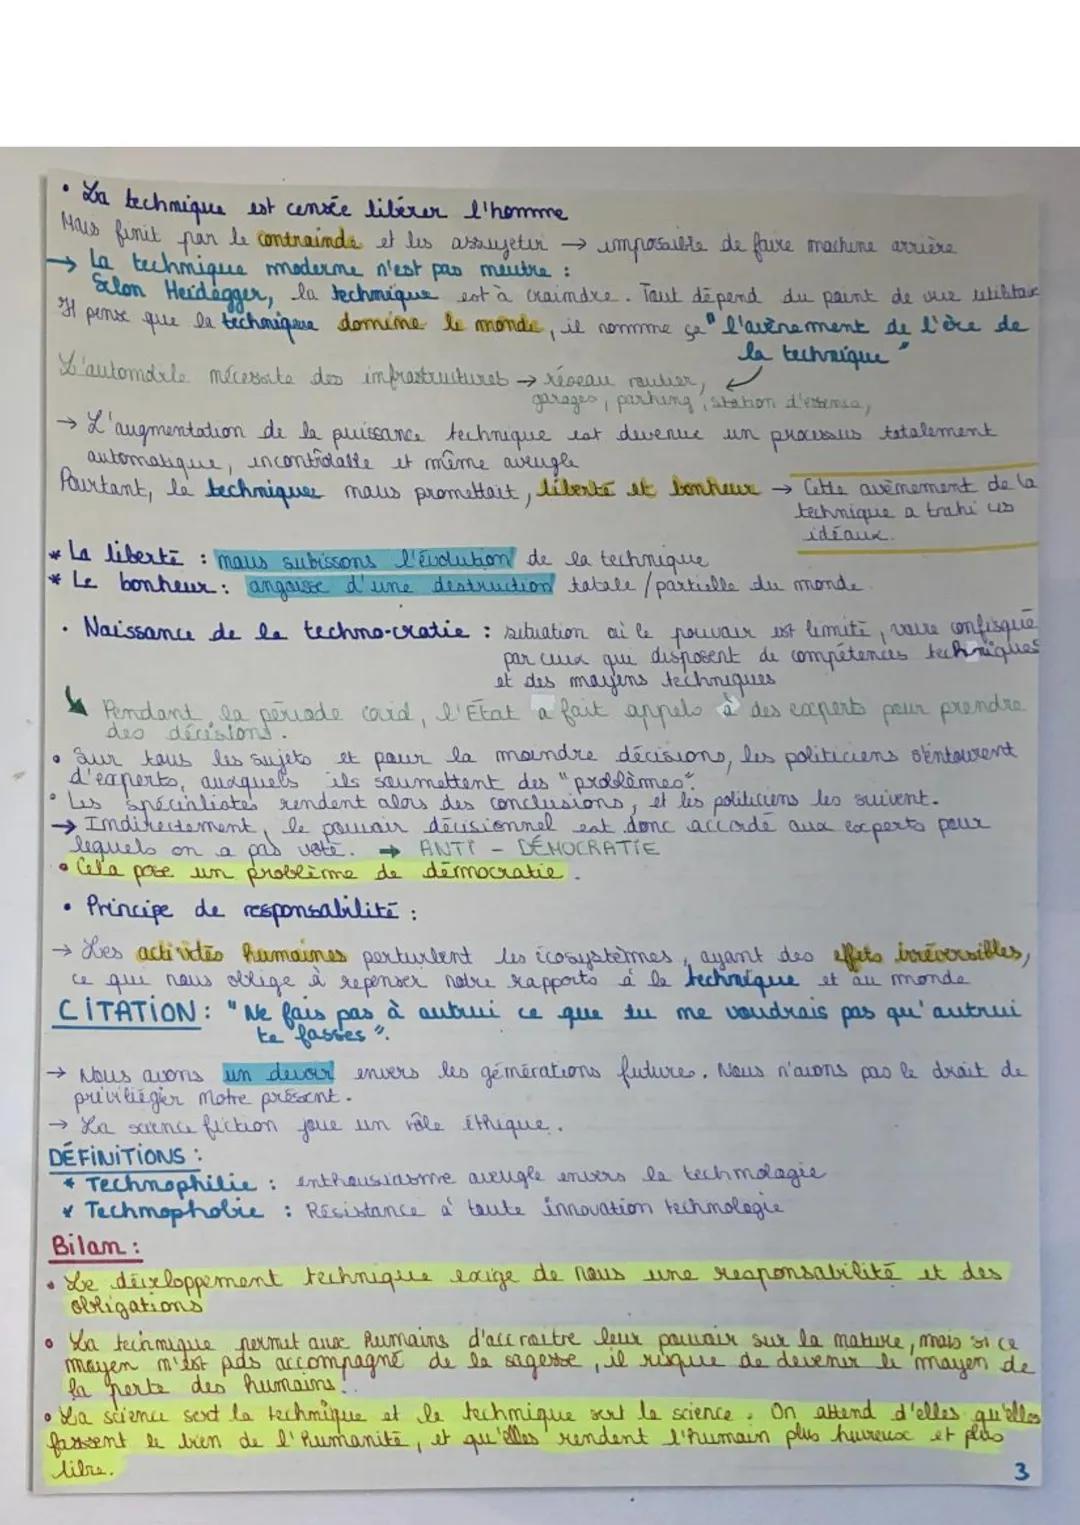 • La technique est censée libérer l'homme
Mais finit par le contrainde et les assujetir → impossible de faire machine arrière
→ La technique moderne n'est pas neutre :
Selon Heidegger, la technique est à craindre. Tout dépend du point de vue utilitair
Il pense que la technique domine le monde, il nomme ça " l'avènement de l'ère de
la technique "
L'automobile nécessite des infrastructures → réseau routier,
garages, parking, station d'essence,
→ L'augmentation de la puissance technique est devenue un processus totalement
automatique, incontrôlable et même aveugle
Pourtant, la technique nous promettait, liberté et bonheur → Cette avènement de la
technique a trahi ces
idéaux.
* La liberté : nous subissons l'évolution de la technique
* Le bonheur : angoisse d'une destruction totale / partielle du monde.
• Naissance de la techno-cratie : situation où le pouvoir est limité, voire confisqué
par ceux qui disposent de compétences techniques
et des moyens techniques
Pendant la période covid, l'État a fait appels à des experts pour prendre
des décisions.
• Sur tous les sujets et pour la moindre décisions, les politiciens s'entourent
d'experts, auxquels ils soumettent des "problèmes".
• Les spécialistes rendent alors des conclusions, et les politiciens les suivent.
→ Indirectement, le pouvoir décisionnel est donc accordé aux experts pour
lequels on a pas voté. → ANTI - DÉMOCRATIE
• Cela pose un problème de démocratie.
• Principe de responsabilité :
→ Les activités humaines perturbent les écosystèmes, ayant des effets irréversibles,
ce qui nous oblige à repenser notre rapports à la technique et au monde
CITATION : "Ne fais pas à autrui ce que tu ne voudrais pas qu'autrui
te fasses".
→ Nous avons un devoir envers les générations futures. Nous n'avons pas le droit de
privilégier notre présent.
→ La science fiction joue un rôle éthique.
DÉFINITIONS :
* Technophilie : enthousiasme aveugle envers la technologie
* Technophobie : Résistance à toute innovation technologie
Bilan :
• Le développement technique exige de nous une responsabilité et des
obligations
• La technique permet aux humains d'accroitre leur pouvoir sur la nature, mais si ce
moyen n'est pas accompagné de la sagesse, il risque de devenir le moyen de
la perte des humains.
• La science sert la technique et la technique sert la science. On attend d'elles qu'elles
fassent le bien de l'humanité, et qu'elles rendent l'humain plus heureux et plus
libre.
3